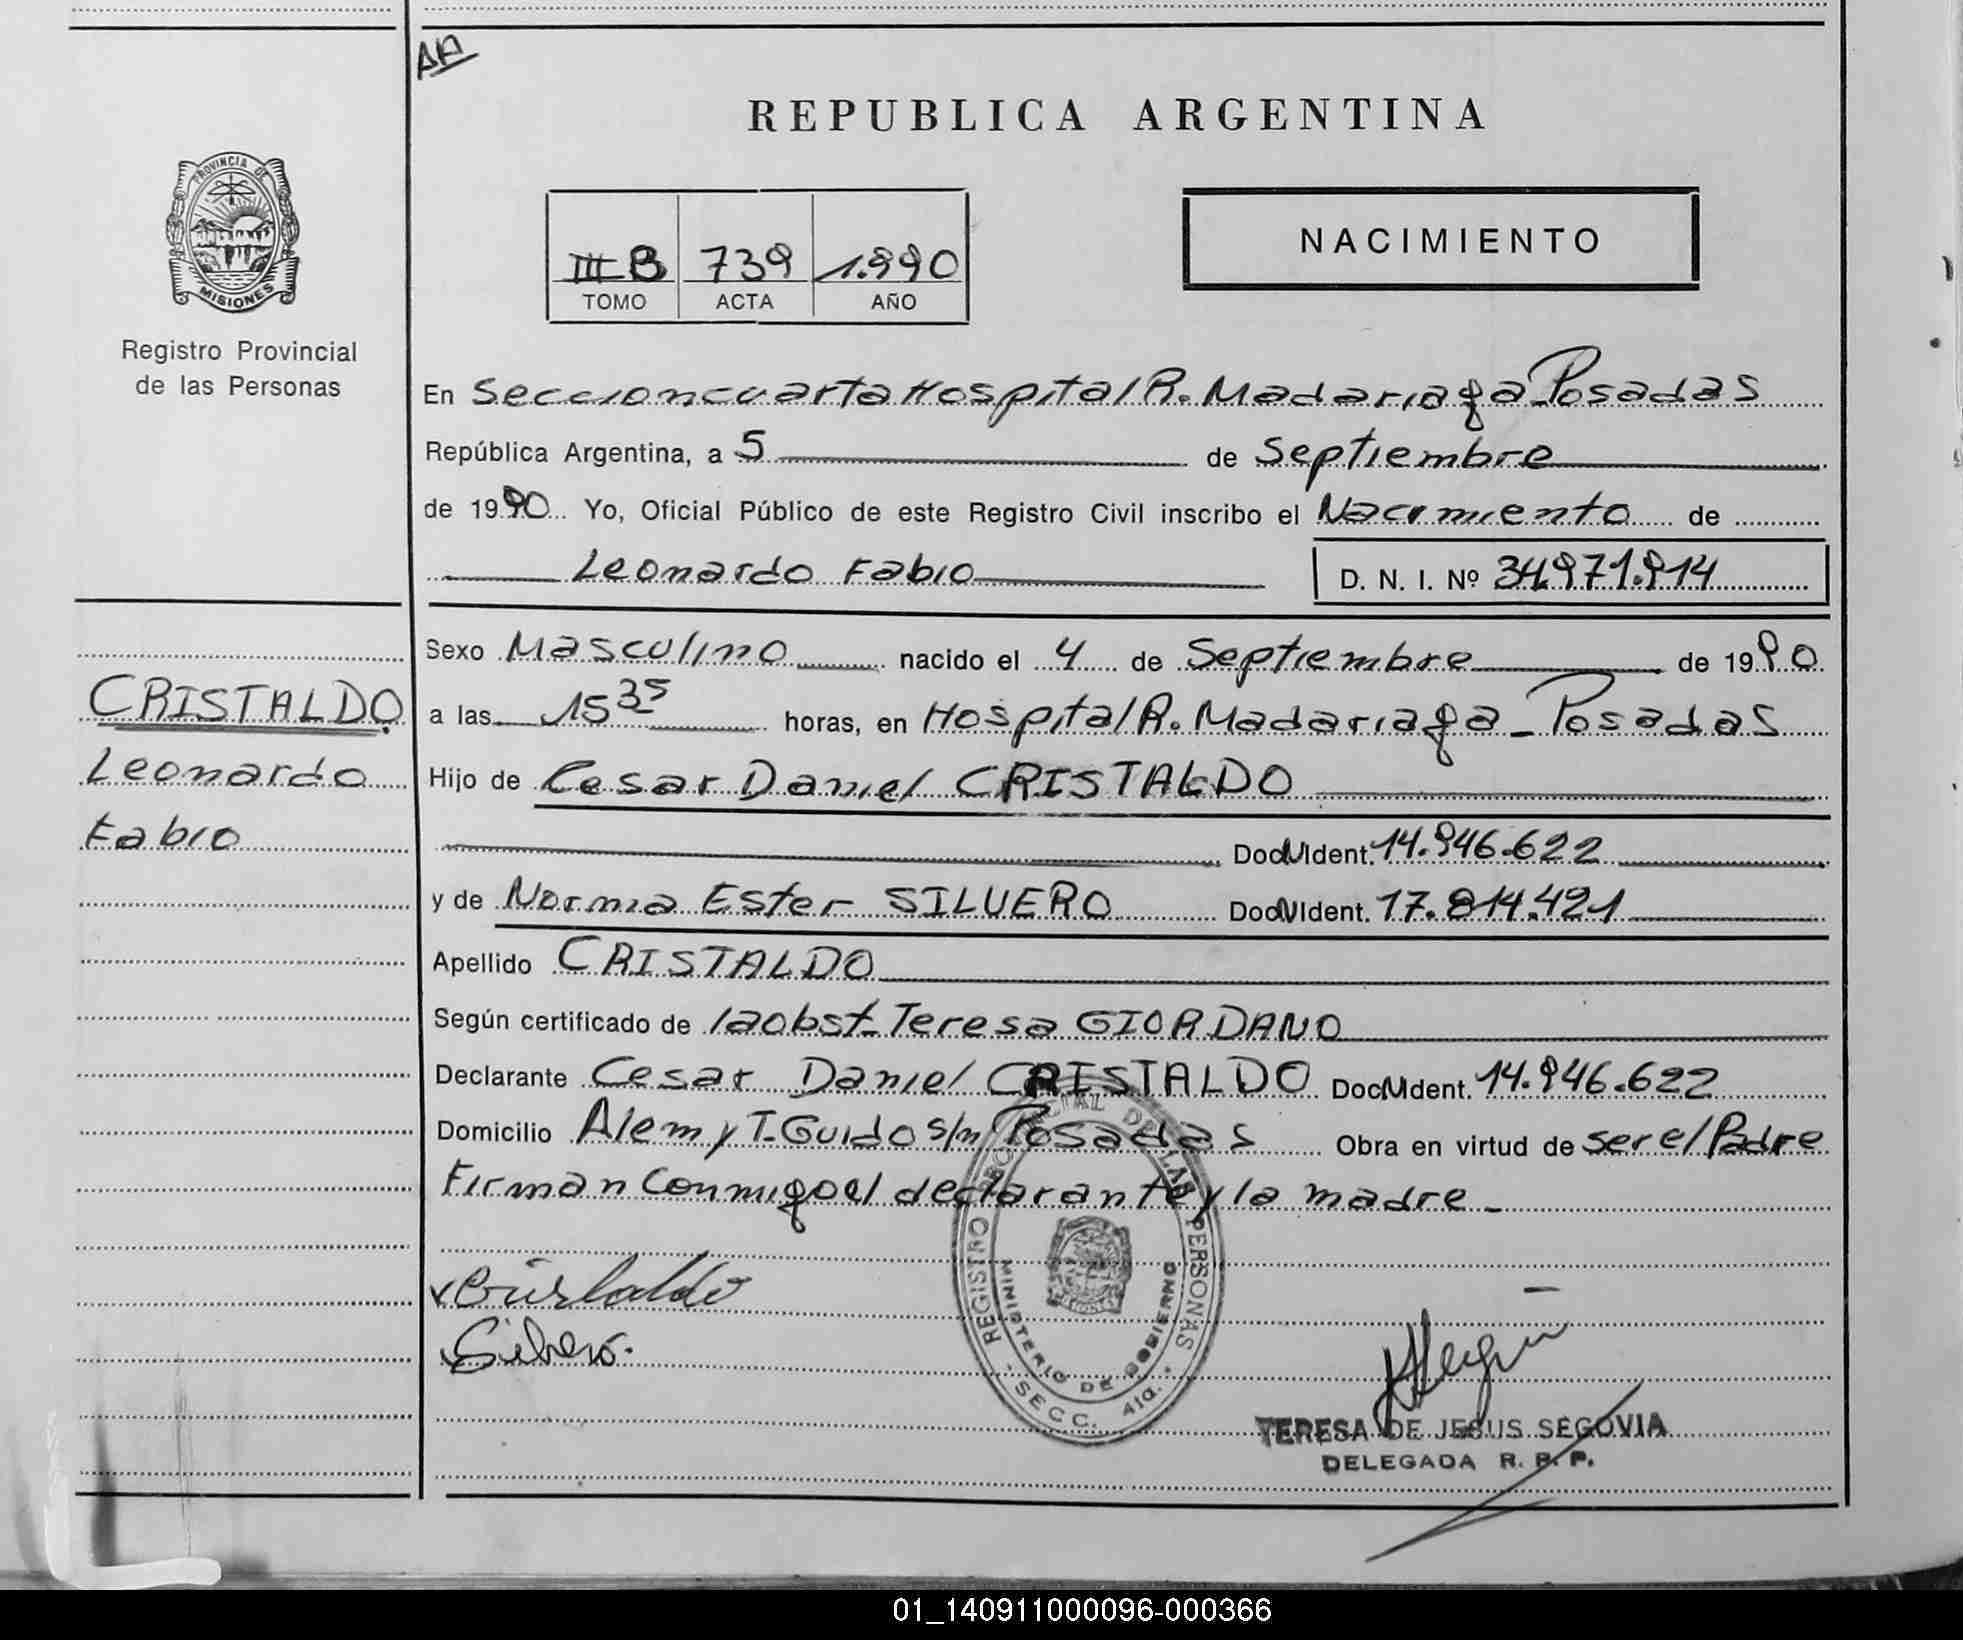 AA
REPUBLICA ARGENTINA
PROVINCIA DE
MISIONES
Registro Provincial
de las Personas
III B 739 1.990
TOMO ACTA AÑO
NACIMIENTO
En Seccion cuarta Hospital R. Madariaga _ Posadas
República Argentina, a 5 de Septiembre
de 1990 Yo, Oficial Público de este Registro Civil inscribo el Nacimiento de
Leonardo Fabio D. N. I. Nº 34.971.914
Sexo Masculino nacido el 4 de Septiembre de 1990
CRISTALDO
Leonardo
Fabio
a las 15 35 horas, en Hospital R. Madariaga _ Posadas
Hijo de Cesar Daniel CRISTALDO
Doc. Ident. 14.946.622
y de Norma Ester SILVERO Doc. Ident. 17.814.421
Apellido CRISTALDO
Según certificado de la obst. Teresa GIORDANO
Declarante Cesar Daniel CRISTALDO Doc. Ident. 14.946.622
Domicilio Alem y T. Guido s/n Posadas Obra en virtud de ser el Padre
Firman conmigo el declarante y la madre _
Cristaldo
Silvero.
REGISTRO PROVINCIAL DE LAS PERSONAS
MINISTERIO DE GOBIERNO
- SECC. 4ta. -
TERESA DE JESUS SEGOVIA
DELEGADA R. P. P.
01_140911000096-000366